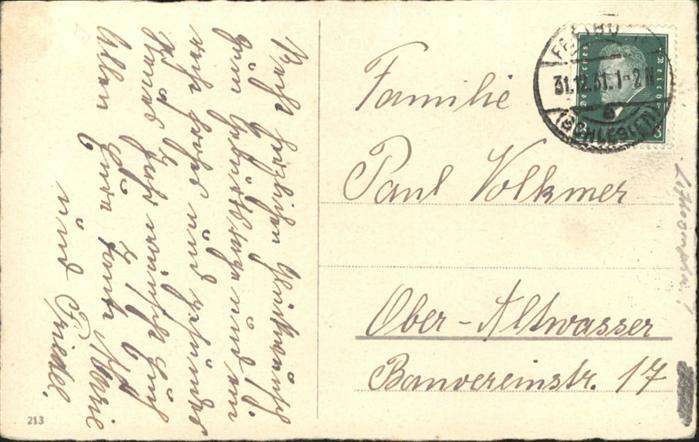 Recht herzlichen Glückwunsch
zum Geburtstage und ein
recht frohes und gesundes
Neues Jahr wünscht Euch
Allen Eure Tante Marie
und Friedel.
Familie
Paul Volkmer
Ober-Altwasser
Banvereinstr. 17
31.12.31. 1-2 N
(SCHLESIEN)
213